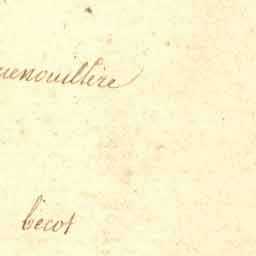 uenouillere
becot